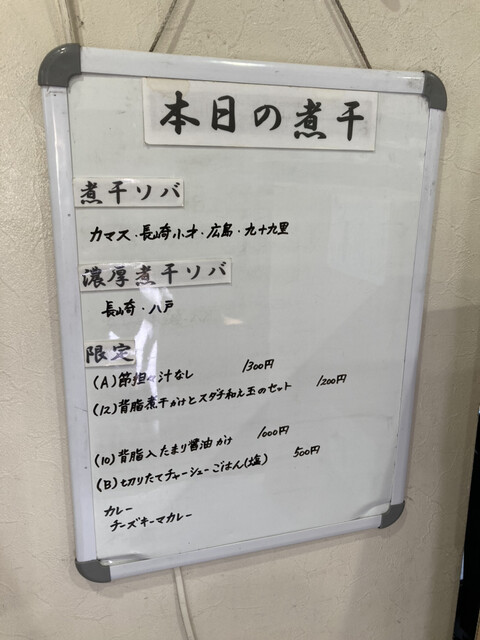 本日の煮干
煮干ソバ
カマス・長崎小才・広島・九十九里
濃厚煮干ソバ
長崎・八戸
限定
(A) 節担々汁なし 1300円
(12) 背脂煮干かけとスダチ和え玉のセット 1200円
(10) 背脂入たまり醤油かけ 1000円
(B) 切りたてチャーシューごはん(塩) 500円
カレー
チーズキーマカレー